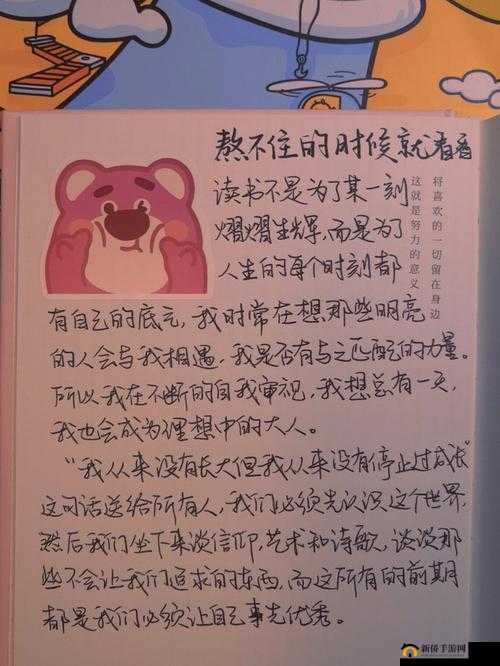 熬不住的时候就看看
将喜欢的一切留在身边
这就是努力的意义
读书不是为了某一刻
熠熠生辉,而是为了
人生的每个时刻都
有自己的底气,我时常在想那些明亮
的人会与我相遇,我是否有与之匹配的力量。
所以我在不断的自我审视,我想总有一天,
我也会成为理想中的大人。
“我从来没有长大但我从来没有停止过成长”
这句话送给所有人,我们必须先认识这个世界,
然后我们坐下来谈信仰,艺术和诗歌,谈谈那
些不会让我们追求的东西,而这所有的前期月
都是我们必须让自己事先优秀。
新侨手游网